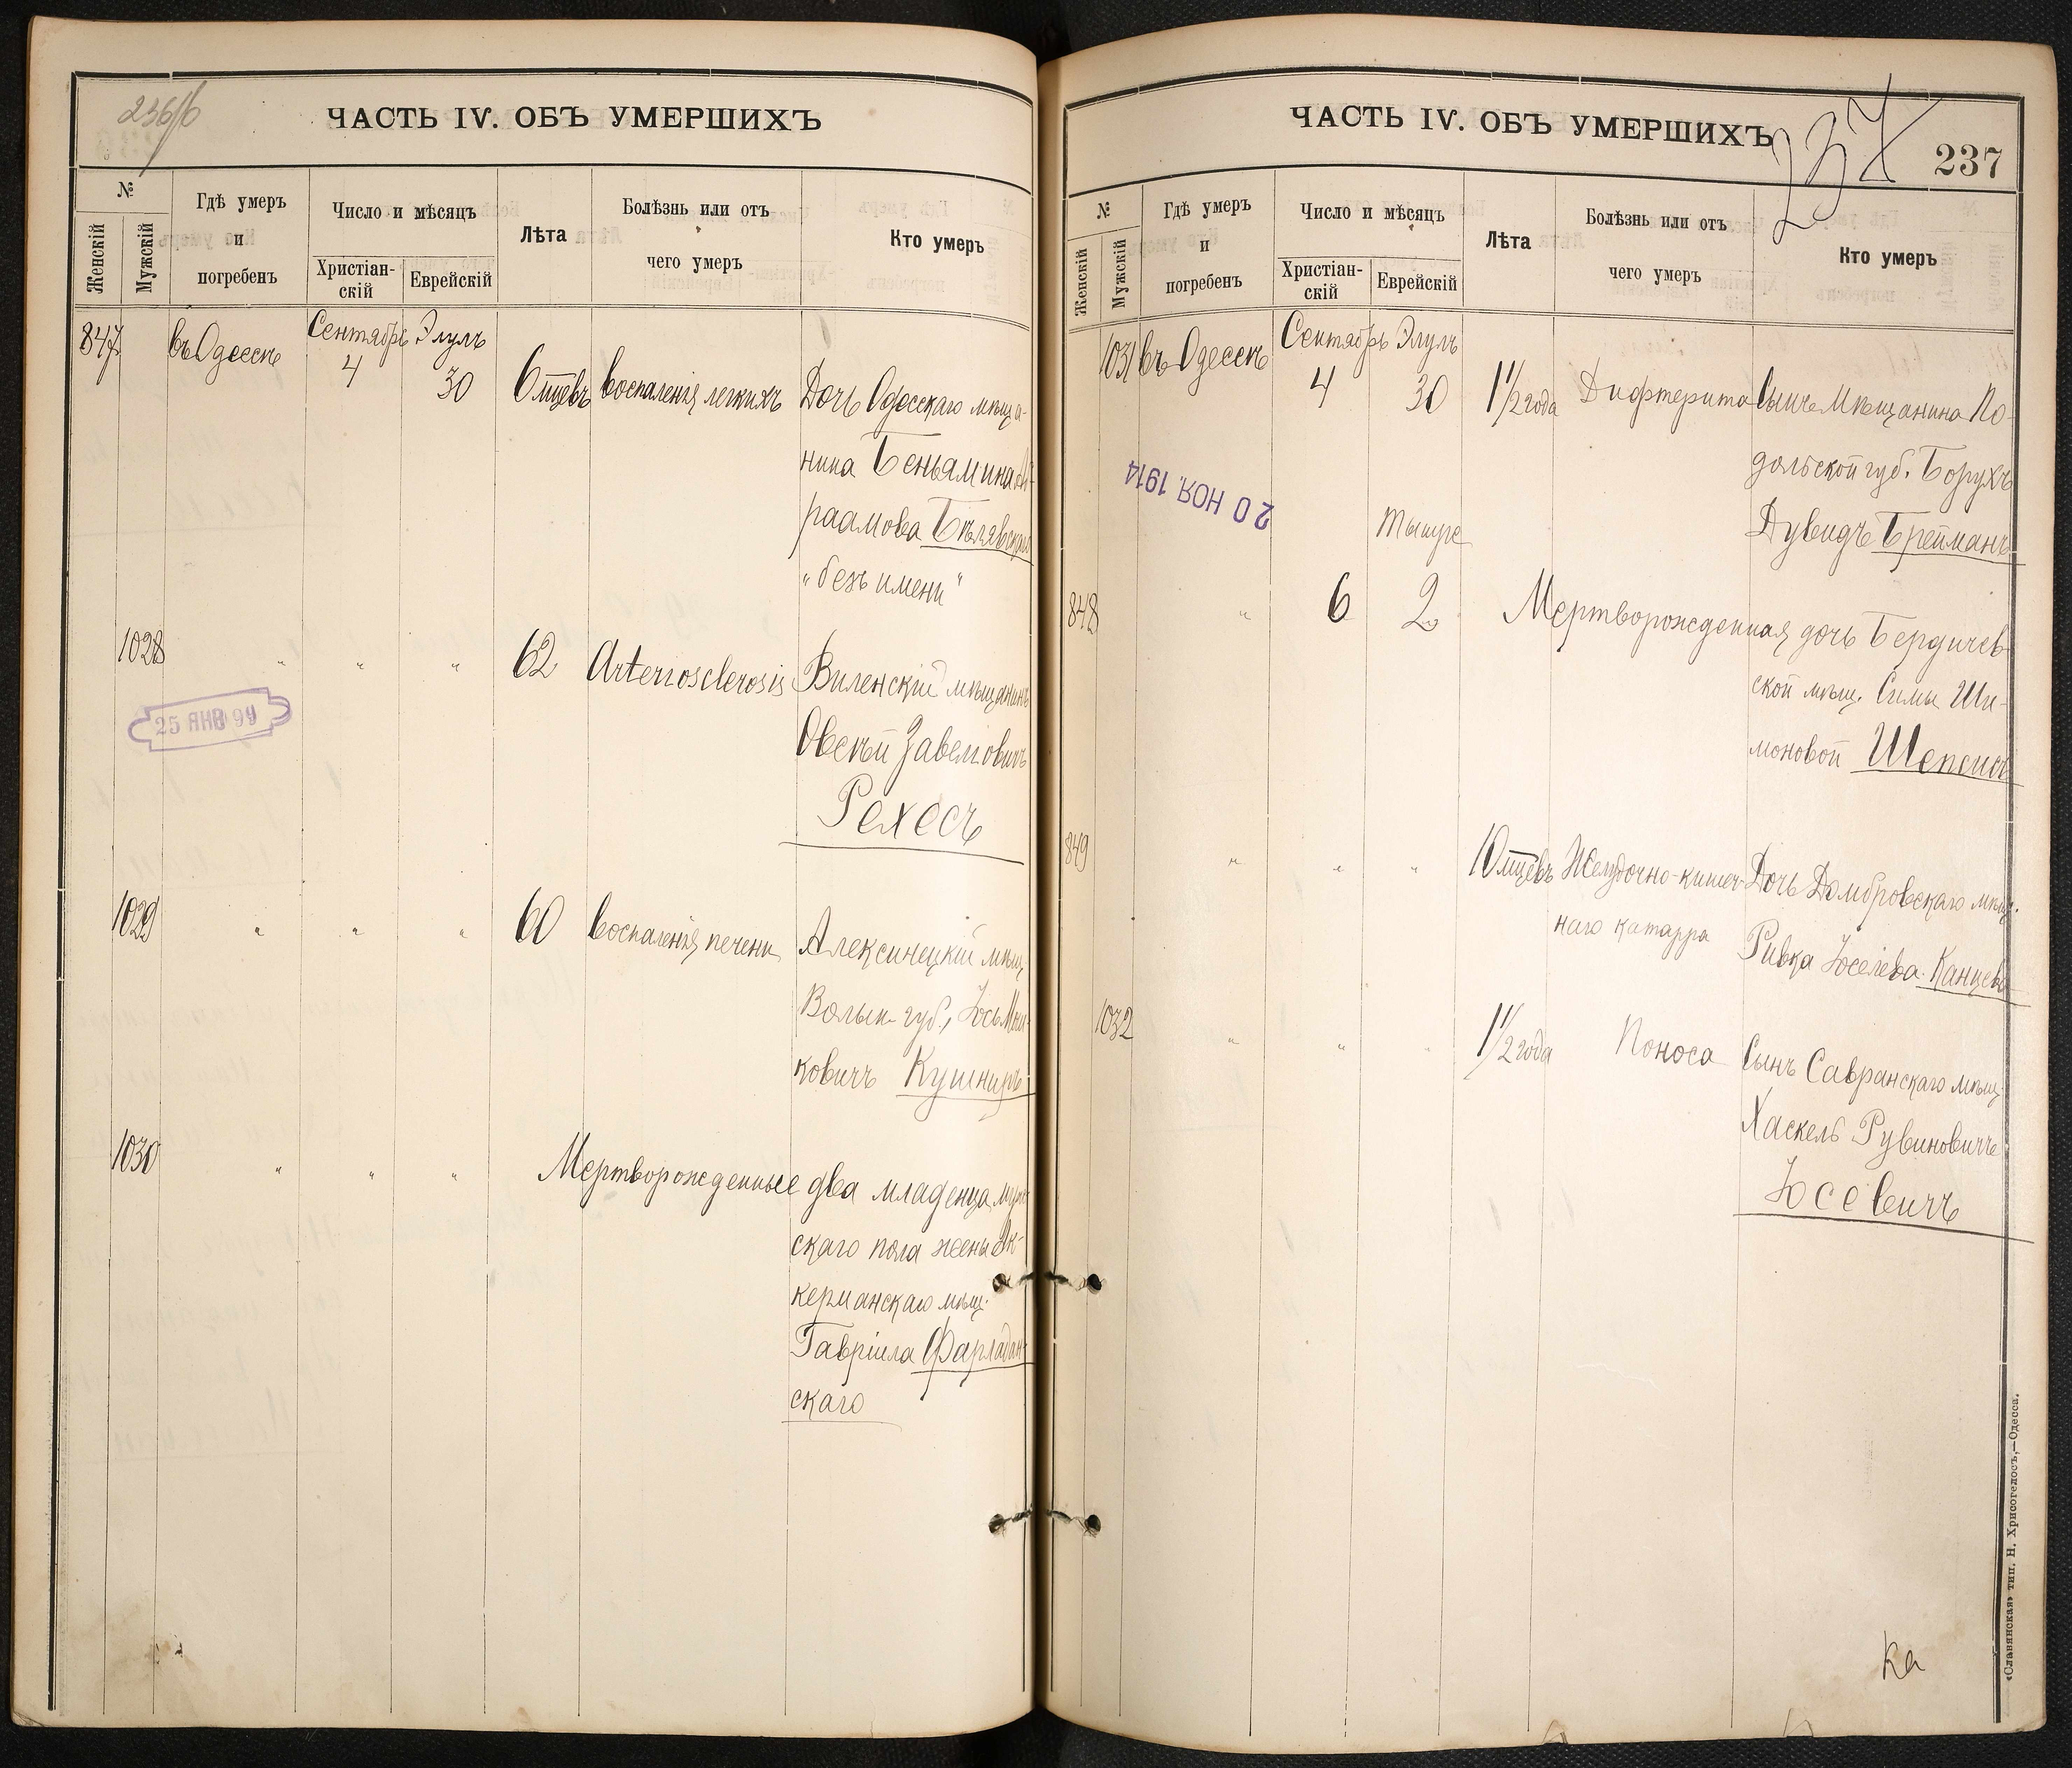 236/б
ЧАСТЬ IV. ОБЪ УМЕРШИХЪ
№
Женскій
Мужскій
Гдѣ умеръ
и
погребенъ
Число и мѣсяцъ
Христіан-
скій
Еврейскій
Лѣта
Болѣзнь или отъ
чего умеръ
Кто умеръ
847
въ Одессѣ
Сентябрь
4
Элулъ
30
6 мцевъ
воспаленія легкихъ
Дочь Одесскаго мѣща-
нина Беньямина Аб-
раамова Бѣлявскаго
"безъ имени"
1028
" " "
62
Arteriosclerosis
Виленскій мѣщанинъ
Овсѣй Завелговичъ
Рехесъ
25 ЯНВ 99
1029
" " "
60
воспаленія печени
Алексинецкій мѣщ.
Волын. губ., Іось
ковичъ Кушниръ
1030
" " "
Мертворожденные два младенца муж-
скаго пола жены Ак-
керманскаго мѣщ.
Гавріила Фарладан-
скаго
ЧАСТЬ IV. ОБЪ УМЕРШИХЪ
237
237
№
Женскій
Мужскій
Гдѣ умеръ
и
погребенъ
Число и мѣсяцъ
Христіан-
скій
Еврейскій
Лѣта
Болѣзнь или отъ
чего умеръ
Кто умеръ
1031
въ Одессѣ
Сентябрь
4
Элулъ
30
1 1/2 года
Дифтерита
Сынъ Мѣщанина По-
дольской губ. Борухъ
Дувидъ Брейманъ
20 НОЯ. 1914
848
"
6
Тышре
2
Мертворожденная дочь Бердичев-
ской мѣщ. Симы Ши-
моновой Шепсисъ
849
" " "
10 мцевъ
Желудочно-кишеч-
наго катарра
Дочь Домбровскаго мѣщ.
Ривка Іоселева Канцева
1032
" " "
1 1/2 года
Поноса
Сынъ Савранскаго мѣщ.
Хаскель Рувиновичъ
Іосевичъ
ка
«Славянская» тип. Н. Хрисогелосъ,—Одесса.